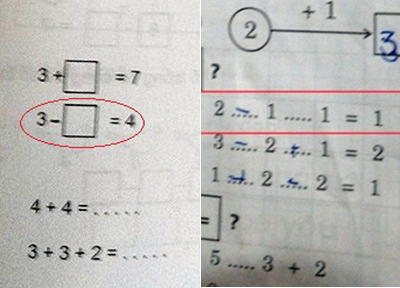 3 + □ = 7
3 - □ = 4
4 + 4 = .....
3 + 3 + 2 = .....
+ 1
2 → 3
?
2 ..-.. 1 ..... 1 = 1
3 ..-.. 2 ..+.. 1 = 2
1 ..+.. 2 ..-.. 2 = 1
= ?
5 ..... 3 + 2